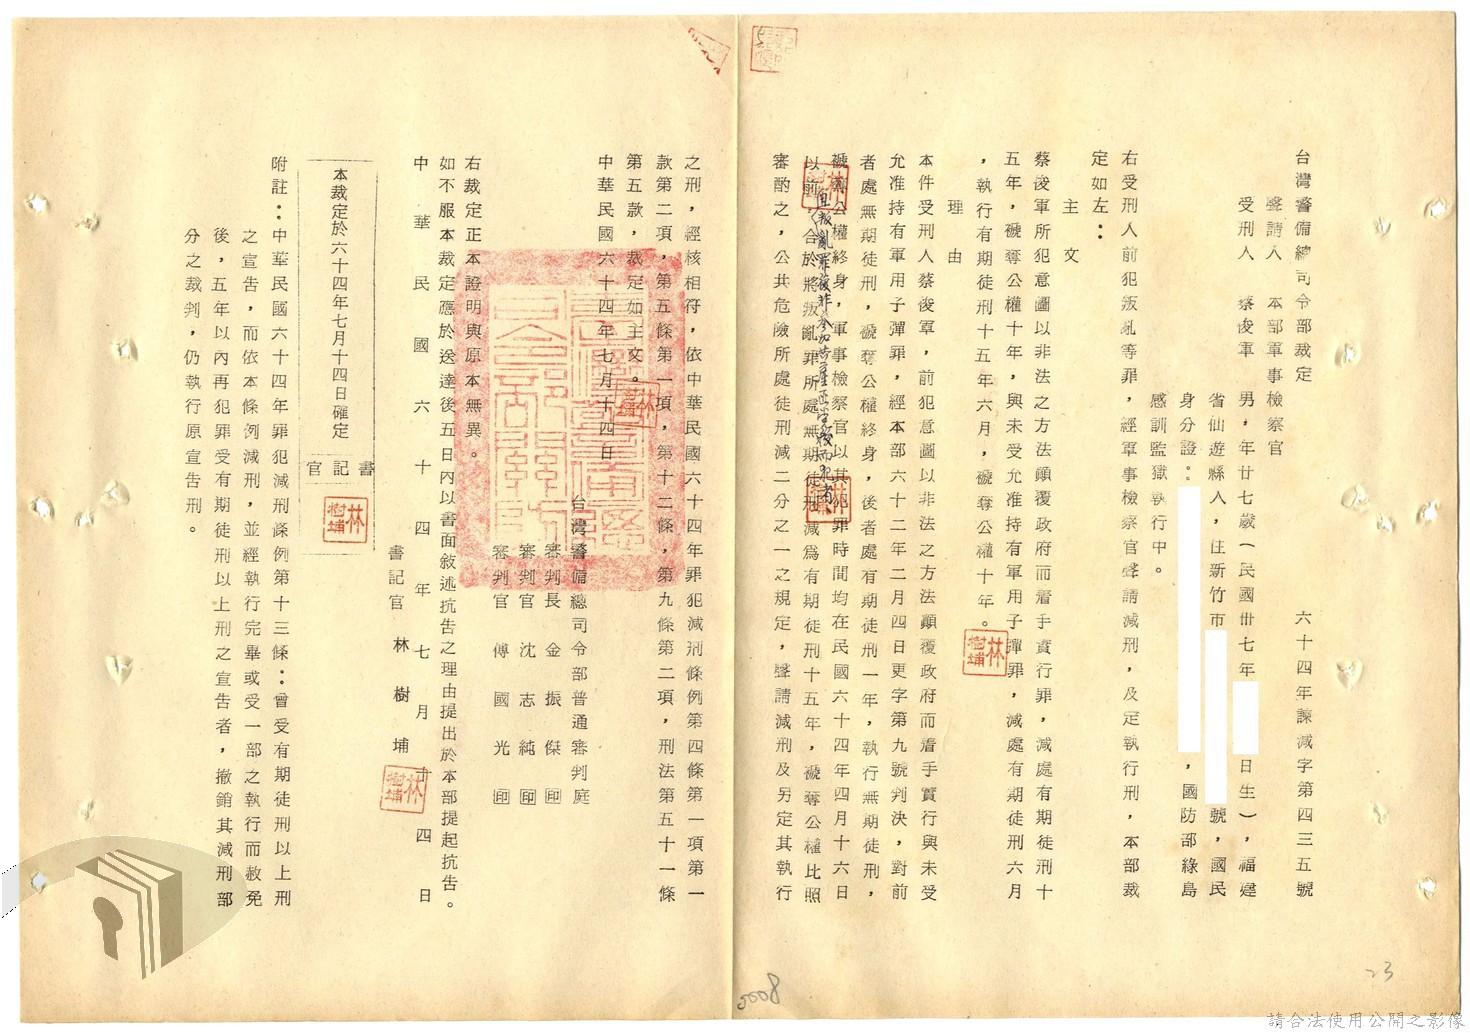 台灣警備總司令部裁定　六十四年諫減字第四三五號
聲請人　本部軍事檢察官
受刑人　蔡俊軍　男，年廿七歲（民國卅七年
日生），福建
省仙遊縣人，住新竹市
號，國民
身分證：
，國防部綠島
感訓監獄執行中。
右受刑人前犯叛亂等罪，經軍事檢察官聲請減刑，及定執行刑，本部裁
定如左：
主文
蔡俊軍所犯意圖以非法之方法顛覆政府而着手實行罪，減處有期徒刑十
五年，褫奪公權十年，與未受允准持有軍用子彈罪，減處有期徒刑六月
，執行有期徒刑十五年六月，褫奪公權十年。
理由
本件受刑人蔡俊軍，前犯意圖以非法之方法顛覆政府而着手實行與未受
允准持有軍用子彈罪，經本部六十二年二月四日更字第九號判決，對前
者處無期徒刑，褫奪公權終身，後者處有期徒刑一年，執行無期徒刑，
褫奪公權終身，軍事檢察官以其犯罪時間均在民國六十四年四月十六日
以前，合於將叛亂罪所處無期徒刑減為有期徒刑十五年，褫奪公權比照
且叛亂罪後非參加
而犯者，
審酌之，公共危險所處徒刑減二分之一之規定，聲請減刑及另定其執行
之刑，經核相符，依中華民國六十四年罪犯減刑條例第四條第一項第一
款第二項，第五條第一項，第十二條，第九條第二項，刑法第五十一條
第五款，裁定如主文。
中華民國六十四年七月十四日
台灣警備總司令部普通審判庭
審判長　金振傑　印
審判官　沈志純　印
審判官　傅國光　印
右裁定正本證明與原本無異。
如不服本裁定應於送達後五日內以書面敘述抗告之理由提出於本部提起抗告。
中華民國六十四年七月十四日
書記官　林樹埔
林樹埔
本裁定於六十四年七月十四日確定
書記官
林樹埔
附註：中華民國六十四年罪犯減刑條例第十三條：曾受有期徒刑以上刑
之宣告，而依本條例減刑，並經執行完畢或受一部之執行而赦免
後，五年以內再犯罪受有期徒刑以上刑之宣告者，撤銷其減刑部
分之裁判，仍執行原宣告刑。
23
請合法使用公開之影像